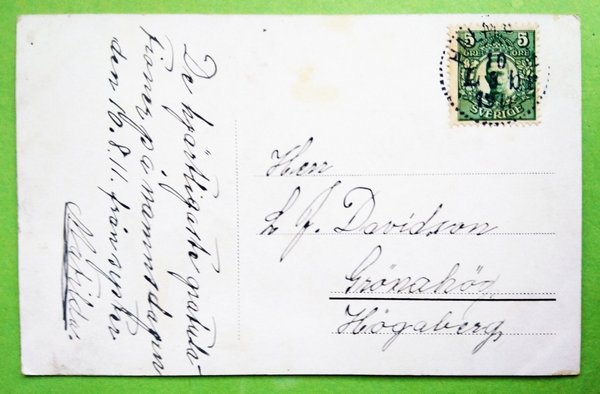 De hjärtligaste gratula-
tioner på namnsdagen
den 16.8.11. från syster
Matilda.
5 5
ÖRE ÖRE
SVERIGE
10
Herr
L J. Davidson
Grönahög
Högaberg